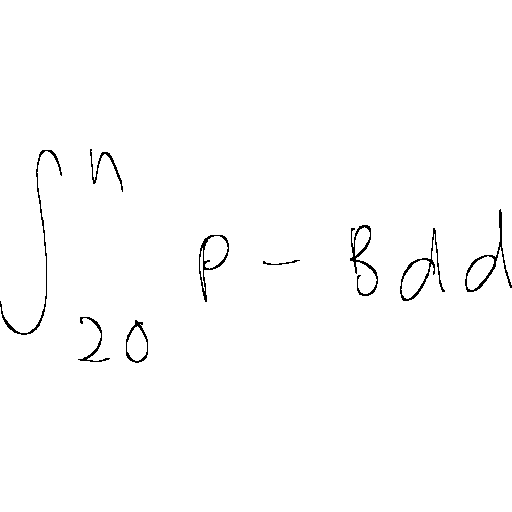 \int_{20}^{n} p - B d d